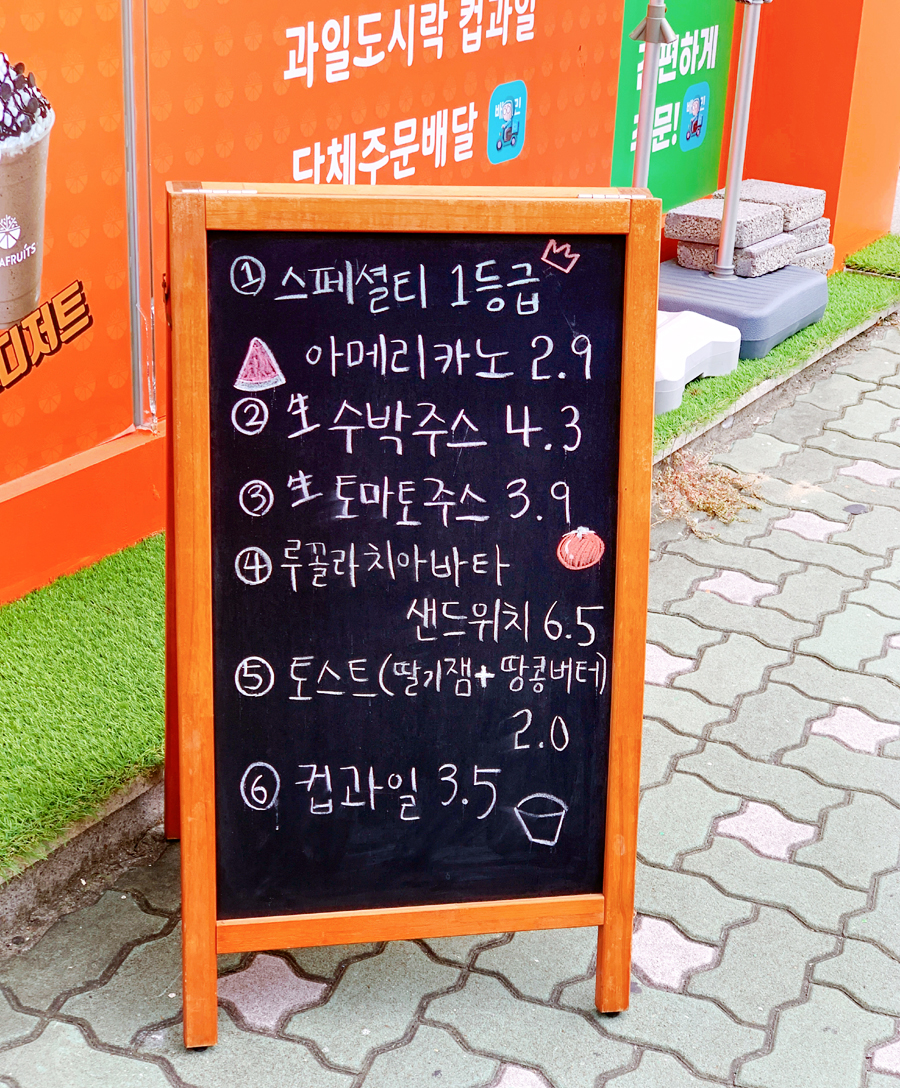 과일도시락 컵과일
단체주문배달
배민
편하게
문!
배민
AFRUITS
디저트
① 스페셜티 1등급
아메리카노 2.9
② 生 수박주스 4.3
③ 生 토마토주스 3.9
④ 루꼴라 치아바타
샌드위치 6.5
⑤ 토스트(딸기잼+땅콩버터)
2.0
⑥ 컵과일 3.5